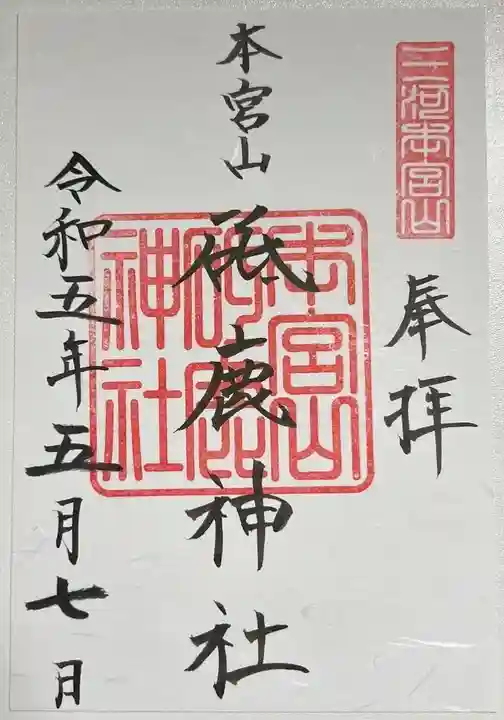 三河本宮山
奉拝
本宮山
砥鹿神社
本宮山
砥鹿
神社
令和五年五月七日